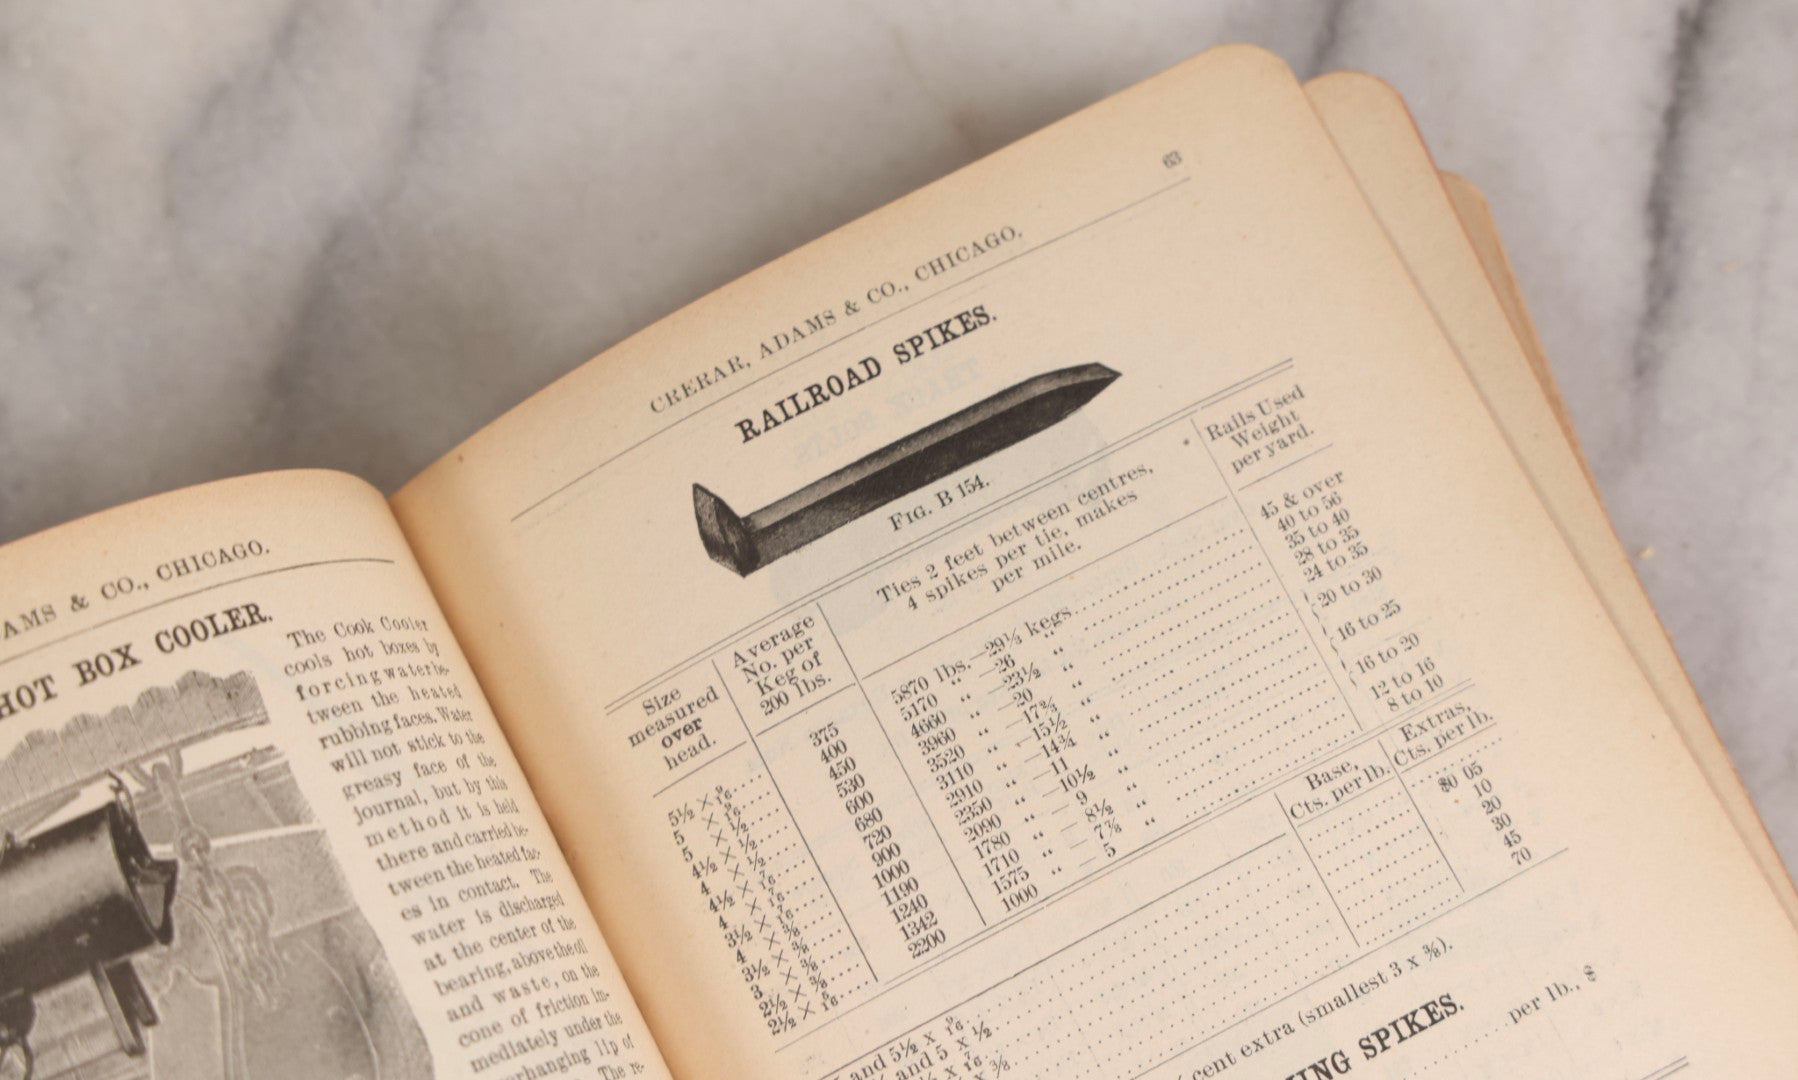 AMS & CO., CHICAGO.
HOT BOX COOLER.
The Cook Cooler
cools hot boxes by
forcing water be-
tween the heated
rubbing faces. Water
will not stick to the
greasy face of the
journal, but by this
method it is held
there and carried be-
tween the heated fac-
es in contact. The
water is discharged
at the center of the
bearing, above the oil
and waste, on the
cone of friction im-
mediately under the
overhanging lip of
The re-
63
CRERAR, ADAMS & CO., CHICAGO.
RAILROAD SPIKES.
FIG. B 154.
Size measured over head.
Average No. per Keg of 200 lbs.
Ties 2 feet between centres, 4 spikes per tie, makes per mile.
Rails Used Weight per yard.
5½ × 9/16 375 5870 lbs.—29⅓ kegs 45 & over
5 × 9/16 400 5170 “ —26 “ 40 to 56
5 × ½ 450 4660 “ —23½ “ 35 to 40
4½ × ½ 530 3960 “ —20 “ 28 to 35
4 × ½ 600 3520 “ —17⅔ “ 24 to 35
4½ × 7/16 680 3110 “ —15½ “ 20 to 30
4 × 7/16 720 2910 “ —14¾ “
3½ × 7/16 900 2350 “ —11 “ 16 to 25
4 × ⅜ 1000 2090 “ —10½ “
3½ × ⅜ 1190 1780 “ — 9 “ 16 to 20
3 × ⅜ 1240 1710 “ — 8½ “
2½ × ⅜ 1342 1575 “ — 7⅞ “ 12 to 16
2½ × 5/16 2200 1000 “ — 5 “ 8 to 10
Base, Cts. per lb.
Extras, Cts. per lb.
and 5½ x 9/16
and 5 x ½ $0 05
x 7/16 10
x ⅜ 20
30
45
70
cent extra (smallest 3 x ⅜).
ING SPIKES.
per lb., $